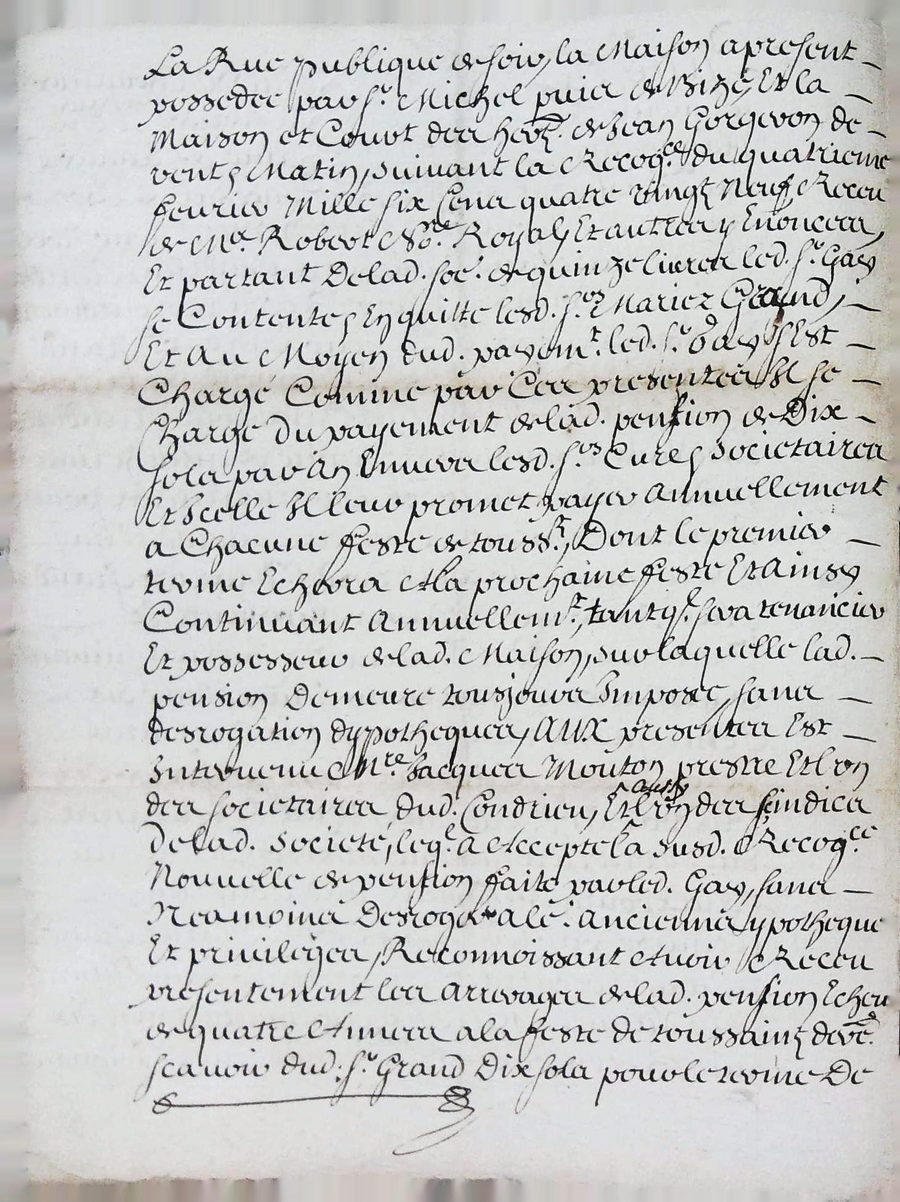 La Rue publique de soir, la Maison apresent
possedée par Sr. Michel puier de Bize, Et la
Maison et Court des herrs. de Jean Gorgeron de
vent, Matin, suivant la Recogce. du quatrieme
feurier Mille six Cens quatre vingt Neuf Receu
de Me. Robert Nore. Royal, Et autres y Enoncees,
Et partant De lad. soe. de quinze livres led. Sr. Gay
se Contente, En quitte lesd. Srs. Mariez Grand,
Et Au Moyen dud. payemt. led. Sr. Gay s'Est
Chargé Comme par Ces presentes Il se
Charge Du payement de lad. pension de Dix
sols par An Enuers lesd. Srs. Curé, Societaires
Et Icelle Il leur promet payer Annuellement
a Chacune feste de toussts., Dont le premier
terme Echerra A la prochaine feste Et Ainsy
Continuant Annuellemt., tant q. sera tenancier
Et possesseur de lad. Maison, sur laquelle lad.
pension Demeure tousjours Imposée, sans
desrogation dypotheques, AUX presentes Est
Interuenu Mre. Jacques Mouton prestre Et l'un
des societaires dud. Condrieu, Et aussy l'un des sindics
De lad. Societé, leql. a Accepté la susd. Recogce.
Nouuelle de pension faite par led. Gay, sans
Neamoins Desroger a se. anciennes ypotheque
Et priuileges, Reconnoissant Auoir Receu
presentement les arrerages de lad. pension Echeu
de quatre Années a la feste de toussaint derre.
scauoir dud. Sr. Grand Dix sols pour le terme De